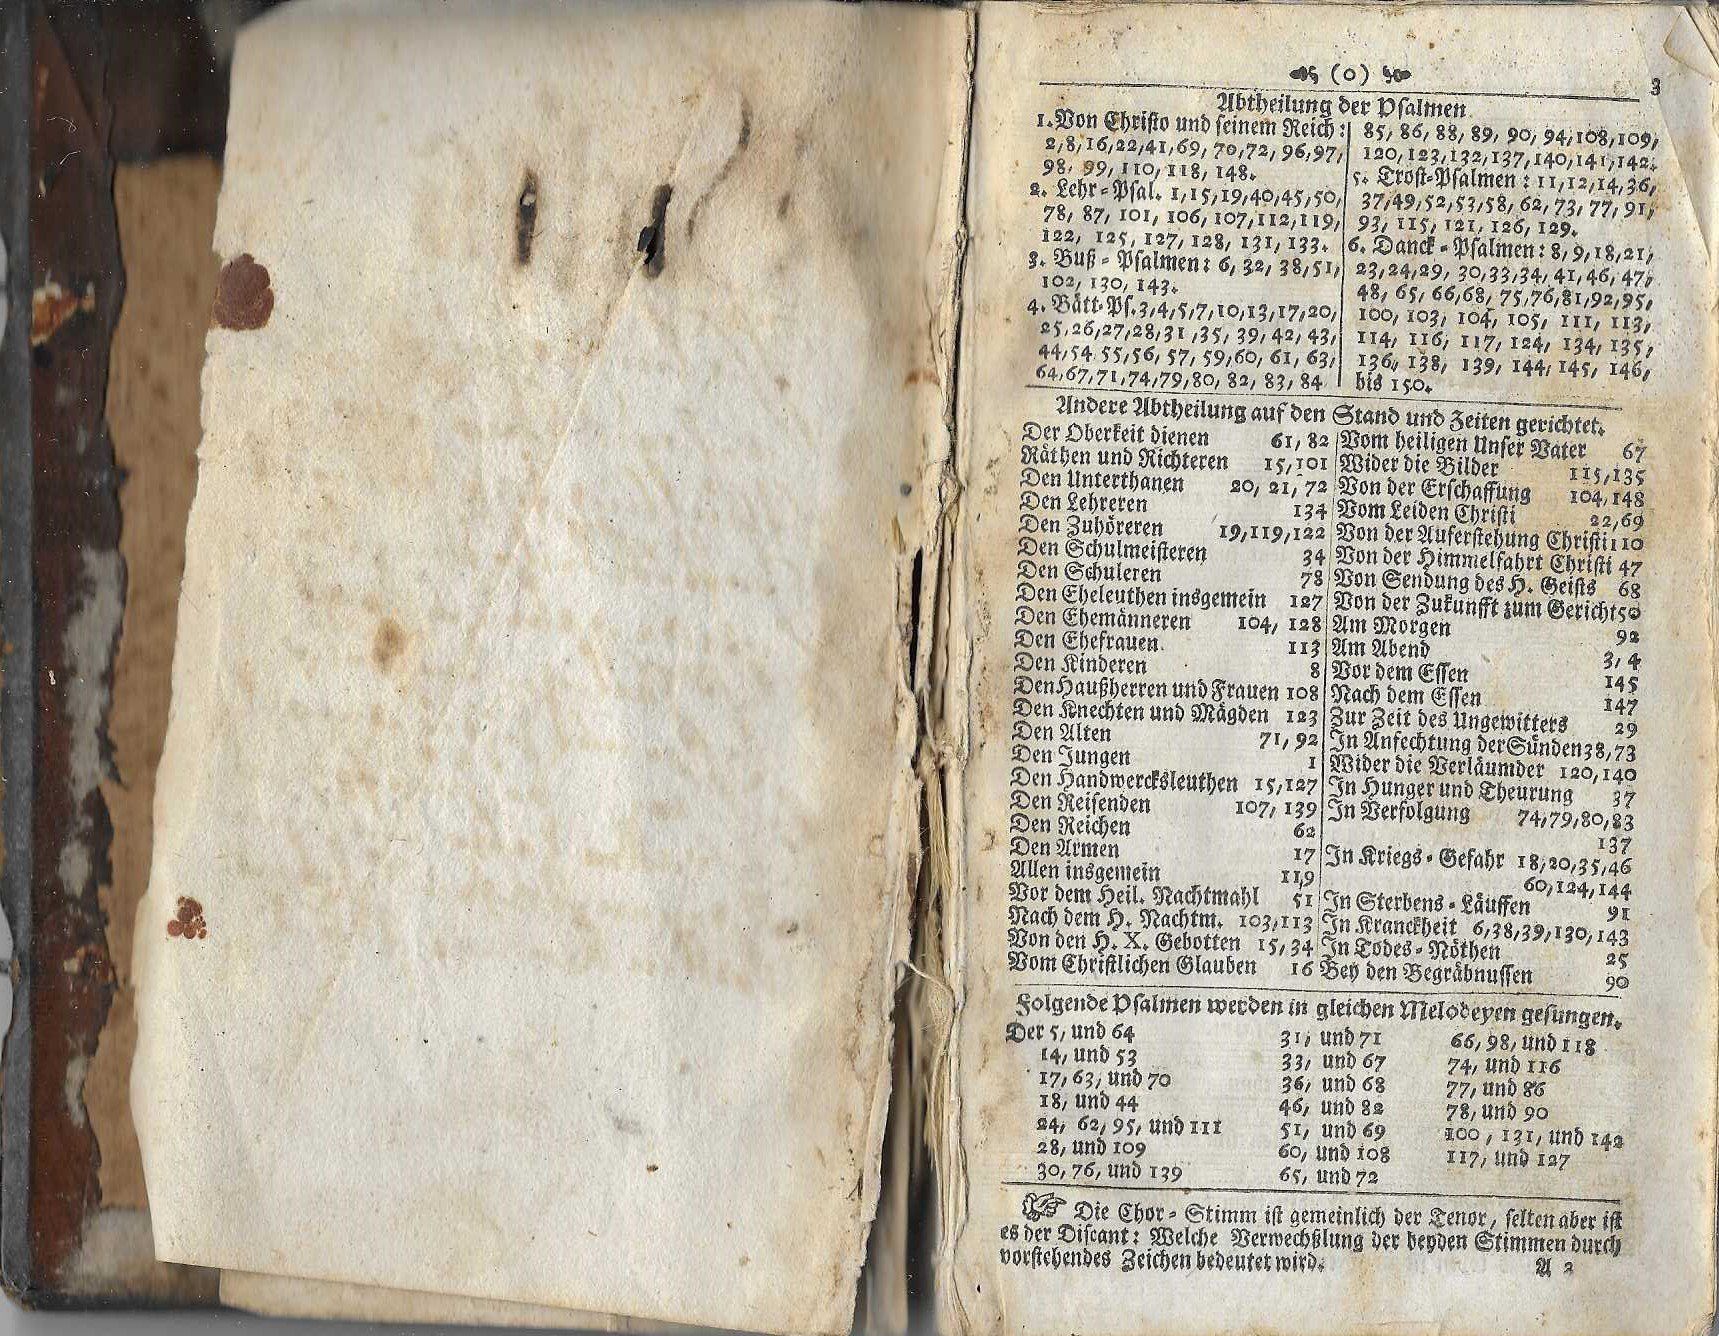 (0)
3
Abtheilung der Psalmen
1. Von Christo und seinem Reich:
2, 8, 16, 22, 41, 69, 70, 72, 96, 97,
98, 99, 110, 118, 148.
2. Lehr-Psal. 1, 15, 19, 40, 45, 50,
78, 87, 101, 106, 107, 112, 119,
122, 125, 127, 128, 131, 133.
3. Buß-Psalmen: 6, 32, 38, 51,
102, 130, 143.
4. Bätt-Ps. 3, 4, 5, 7, 10, 13, 17, 20,
25, 26, 27, 28, 31, 35, 39, 42, 43,
44, 54 55, 56, 57, 59, 60, 61, 63,
64, 67, 71, 74, 79, 80, 82, 83, 84
85, 86, 88, 89, 90, 94, 108, 109,
120, 123, 132, 137, 140, 141, 142.
5. Trost-Psalmen: 11, 12, 14, 36,
37, 49, 52, 53, 58, 62, 73, 77, 91,
93, 115, 121, 126, 129.
6. Danck-Psalmen: 8, 9, 18, 21,
23, 24, 29, 30, 33, 34, 41, 46, 47,
48, 65, 66, 68, 75, 76, 81, 92, 95,
100, 103, 104, 105, 111, 113,
114, 116, 117, 124, 134, 135,
136, 138, 139, 144, 145, 146,
bis 150.
Andere Abtheilung auf den Stand und Zeiten gerichtet.
Der Oberkeit dienen 61, 82
Räthen und Richteren 15, 101
Den Unterthanen 20, 21, 72
Den Lehreren 134
Den Zuhöreren 19, 119, 122
Den Schulmeisteren 34
Den Schuleren 78
Den Eheleuthen insgemein 127
Den Ehemänneren 104, 128
Den Ehefrauen 113
Den Kinderen 8
Den Haußherren und Frauen 108
Den Knechten und Mägden 123
Den Alten 71, 92
Den Jungen 1
Den Handwercksleuthen 15, 127
Den Reisenden 107, 139
Den Reichen 62
Den Armen 17
Allen insgemein 119
Vor dem Heil. Nachtmahl 51
Nach dem H. Nachtm. 103, 113
Von den H. X. Gebotten 15, 34
Vom Christlichen Glauben 16
Vom heiligen Unser Vater 67
Wider die Bilder 115, 135
Von der Erschaffung 104, 148
Vom Leiden Christi 22, 69
Von der Auferstehung Christi 110
Von der Himmelfahrt Christi 47
Von Sendung des H. Geists 68
Von der Zukunfft zum Gericht 50
Am Morgen 92
Am Abend 3, 4
Vor dem Essen 145
Nach dem Essen 147
Zur Zeit des Ungewitters 29
In Anfechtung der Sünden 38, 73
Wider die Verläumder 120, 140
In Hunger und Theurung 37
In Verfolgung 74, 79, 80, 83
137
In Kriegs-Gefahr 18, 20, 35, 46
60, 124, 144
In Sterbens-Läuffen 91
In Kranckheit 6, 38, 39, 130, 143
In Todes-Nöthen 25
Bey den Begräbnussen 90
Folgende Psalmen werden in gleichen Melodeyen gesungen.
Der 5, und 64
14, und 53
17, 63, und 70
18, und 44
24, 62, 95, und 111
28, und 109
30, 76, und 139
31, und 71
33, und 67
36, und 68
46, und 82
51, und 69
60, und 108
65, und 72
66, 98, und 118
74, und 116
77, und 86
78, und 90
100, 131, und 142
117, und 127
☞ Die Chor-Stimm ist gemeinlich der Tenor, selten aber ist
es der Discant: Welche Verwechßlung der beyden Stimmen durch
vorstehendes Zeichen bedeutet wird.
A 2